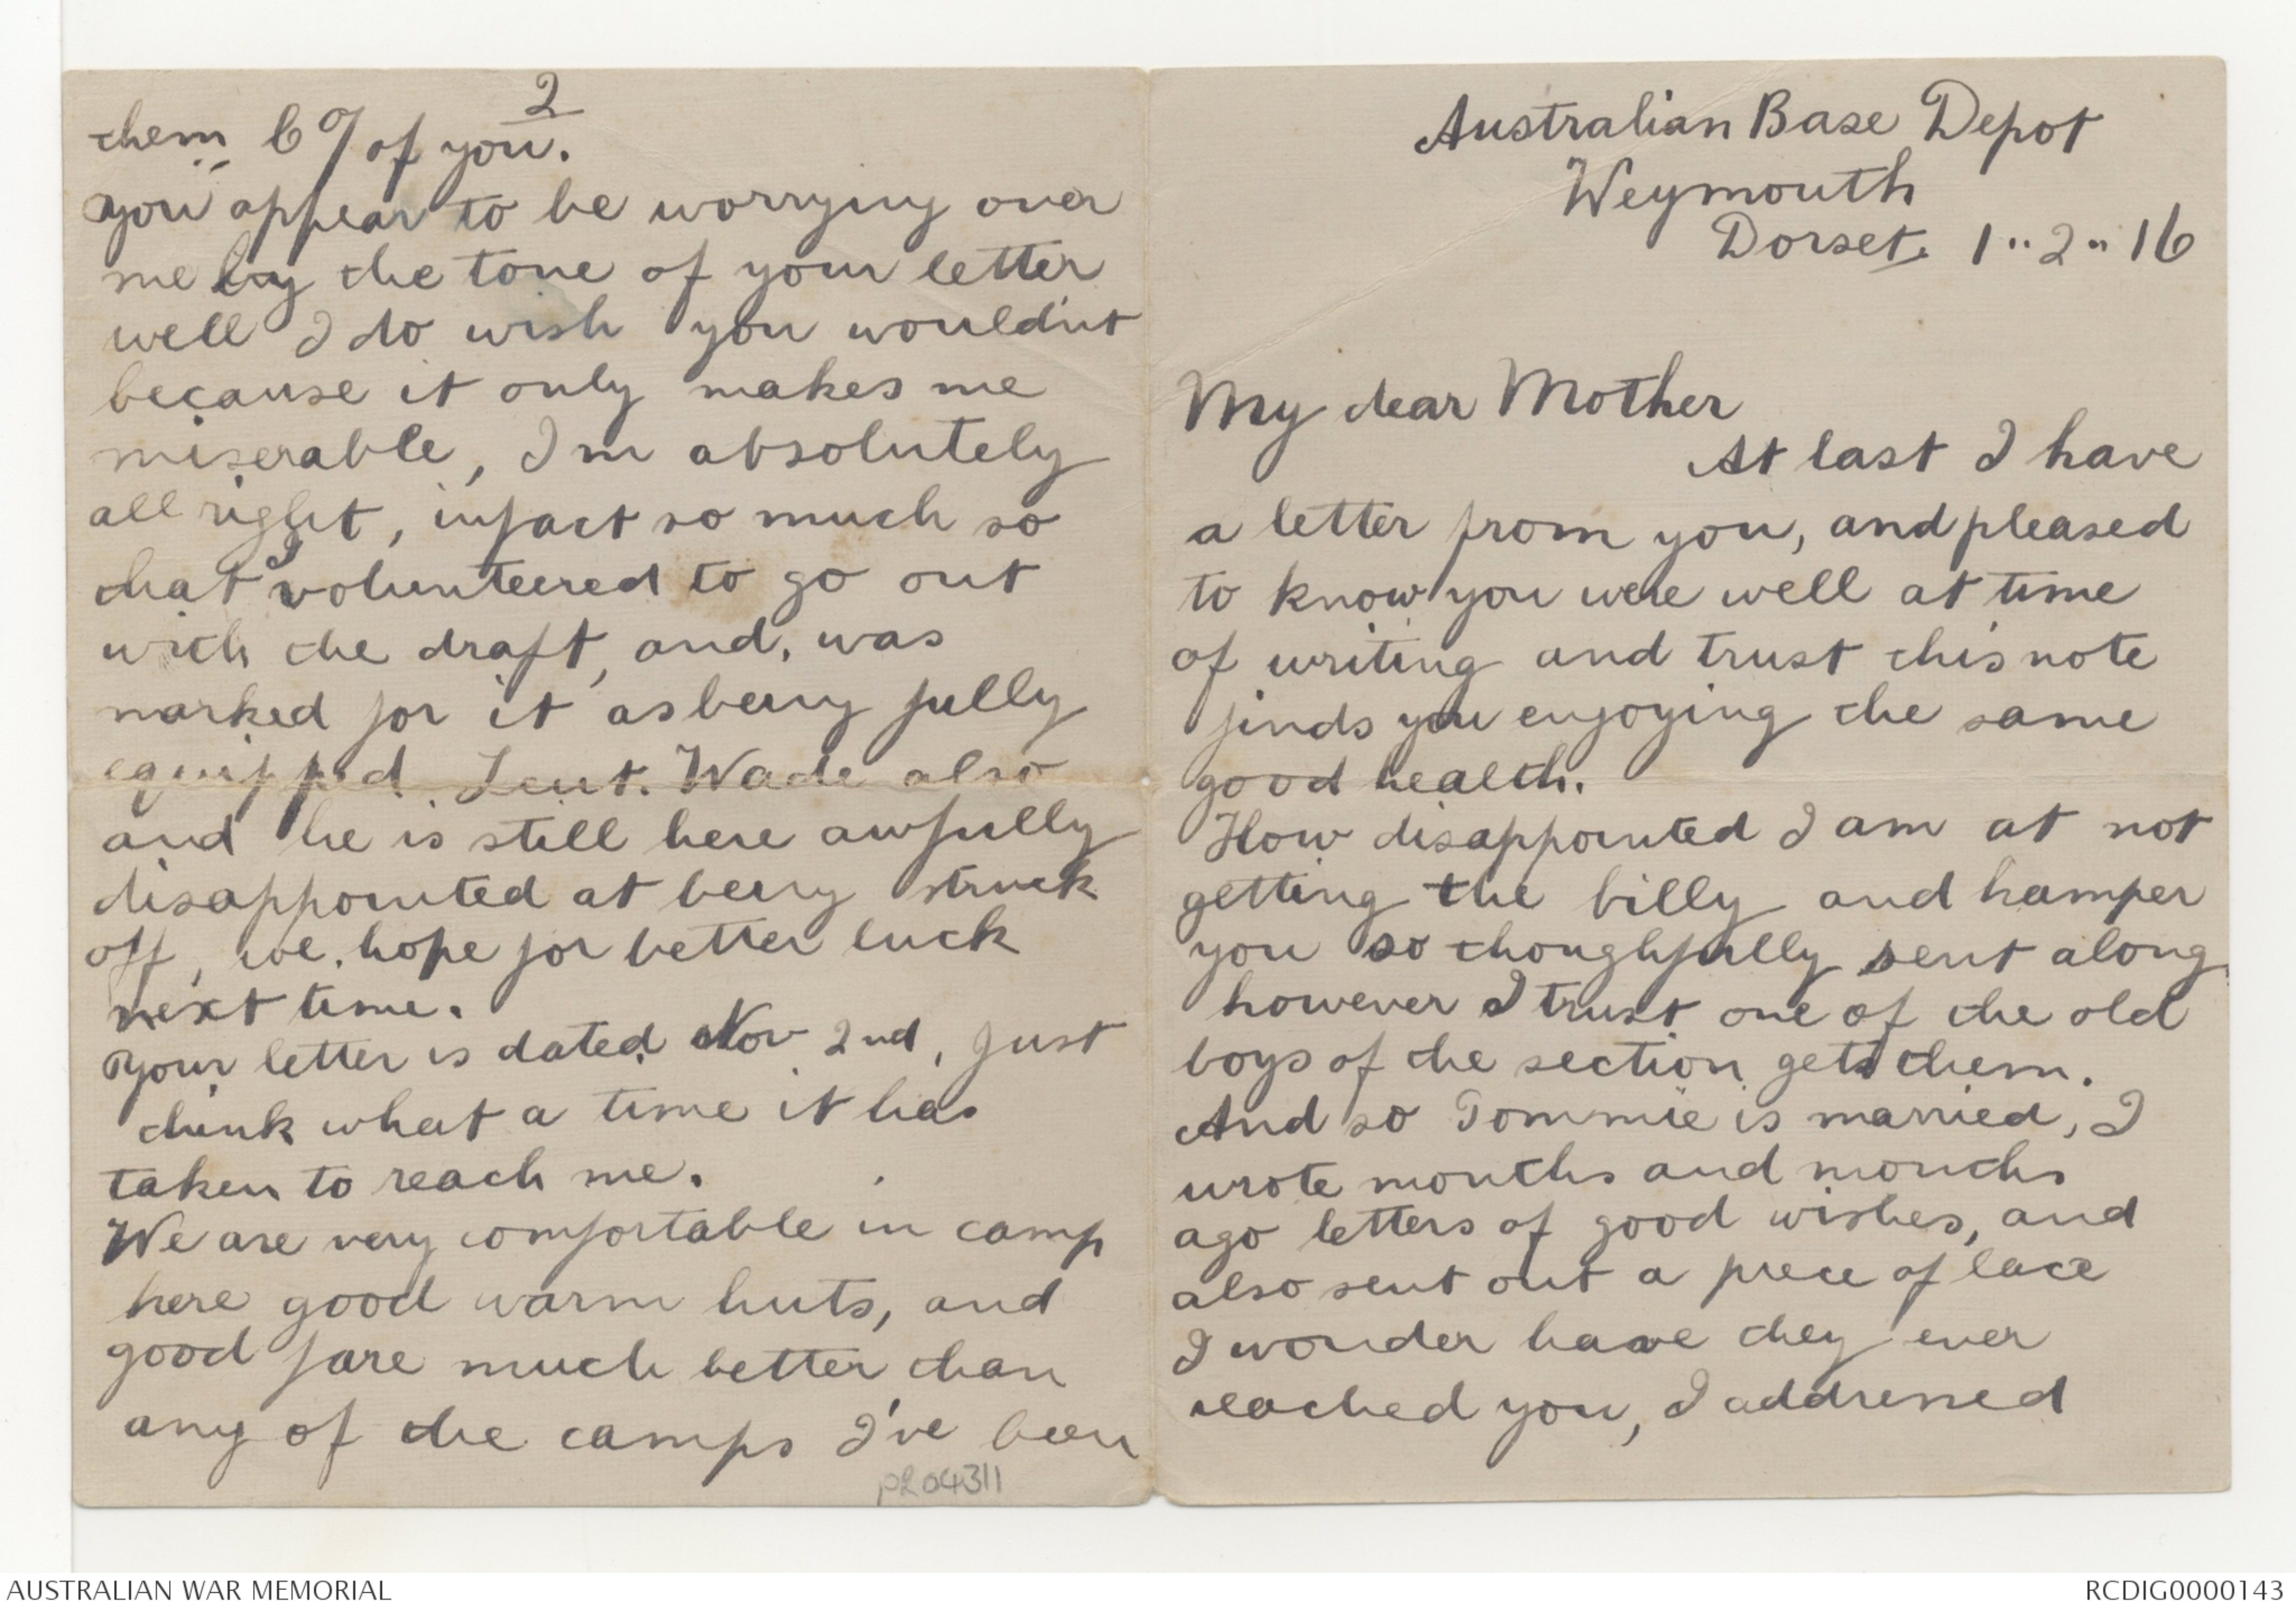 Australian Base Depot
Weymouth
Dorset. 1".2".16
My dear Mother
At last I have
a letter from you, and pleased
to know you were well at time
of writing and trust this note
finds you enjoying the same
good health.
How disappointed I am at not
getting the billy and hamper
you so thoughfully sent along
however I trust one of the old
boys of the section gets them.
And so Tommie is married, I
wrote months and months
ago letters of good wishes, and
also sent out a piece of lace
I wonder have they ever
reached you, I addressed
2
them of you.
You appear to be worrying over
me by the tone of your letter
well I do wish you wouldn't
because it only makes me
miserable, I'm absolutely
all right, infact so much so
that I volunteered to go out
with the draft, and, was
marked for it as being fully
equipped. Leut. Wade also
and he is still here awfully
disappointed at being struck
off, we hope for better luck
next time.
Your letter is dated Nov 2nd, just
think what a time it has
taken to reach me.
We are very comfortable in camp
here good warm huts, and
good fare much better than
any of the camps I've been
PR04311
AUSTRALIAN WAR MEMORIAL
RCDIG0000143